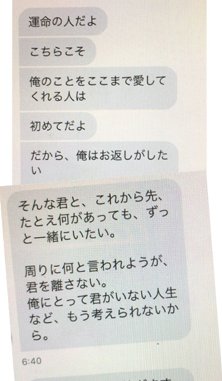 運命の人だよ
こちらこそ
俺のことをここまで愛して
くれる人は
初めてだよ
だから、俺はお返しがした
い
そんな君と、これから先、
たとえ何があっても、ずっ
と一緒にいたい。
周りに何と言われようが、
君を離さない。
俺にとって君がいない人生
など、もう考えられないか
ら。
6:40